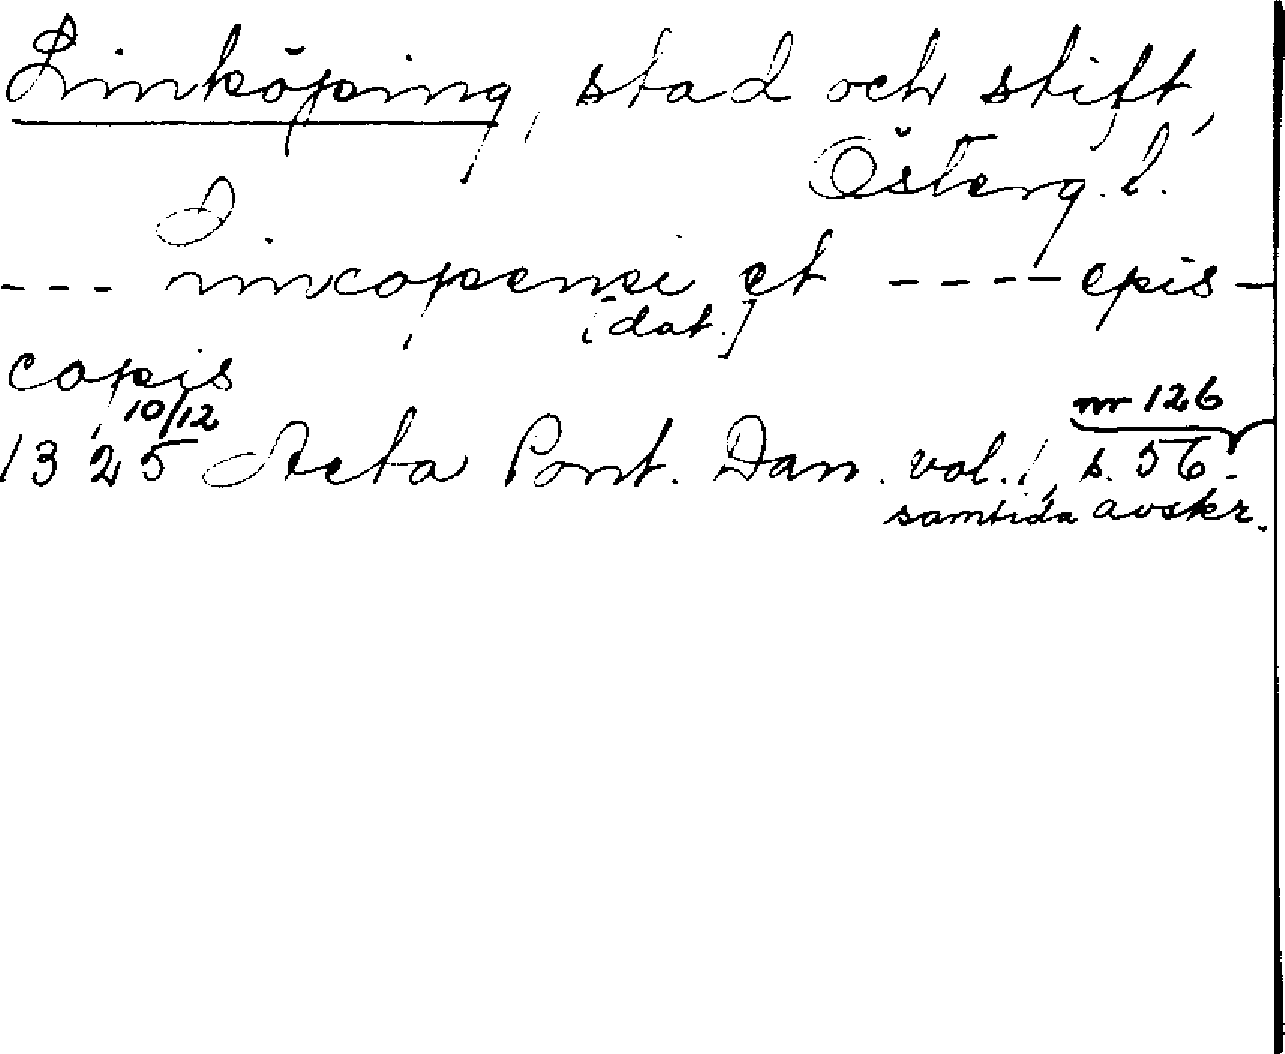 Linköping, stad och stift,
Österg. l.
--- nincopensi et ---- epis-
[dat.]
copis
10/12 nr 126
1325 Acta Pont. Dan. vol. 1, s. 56.
samtida avskr.